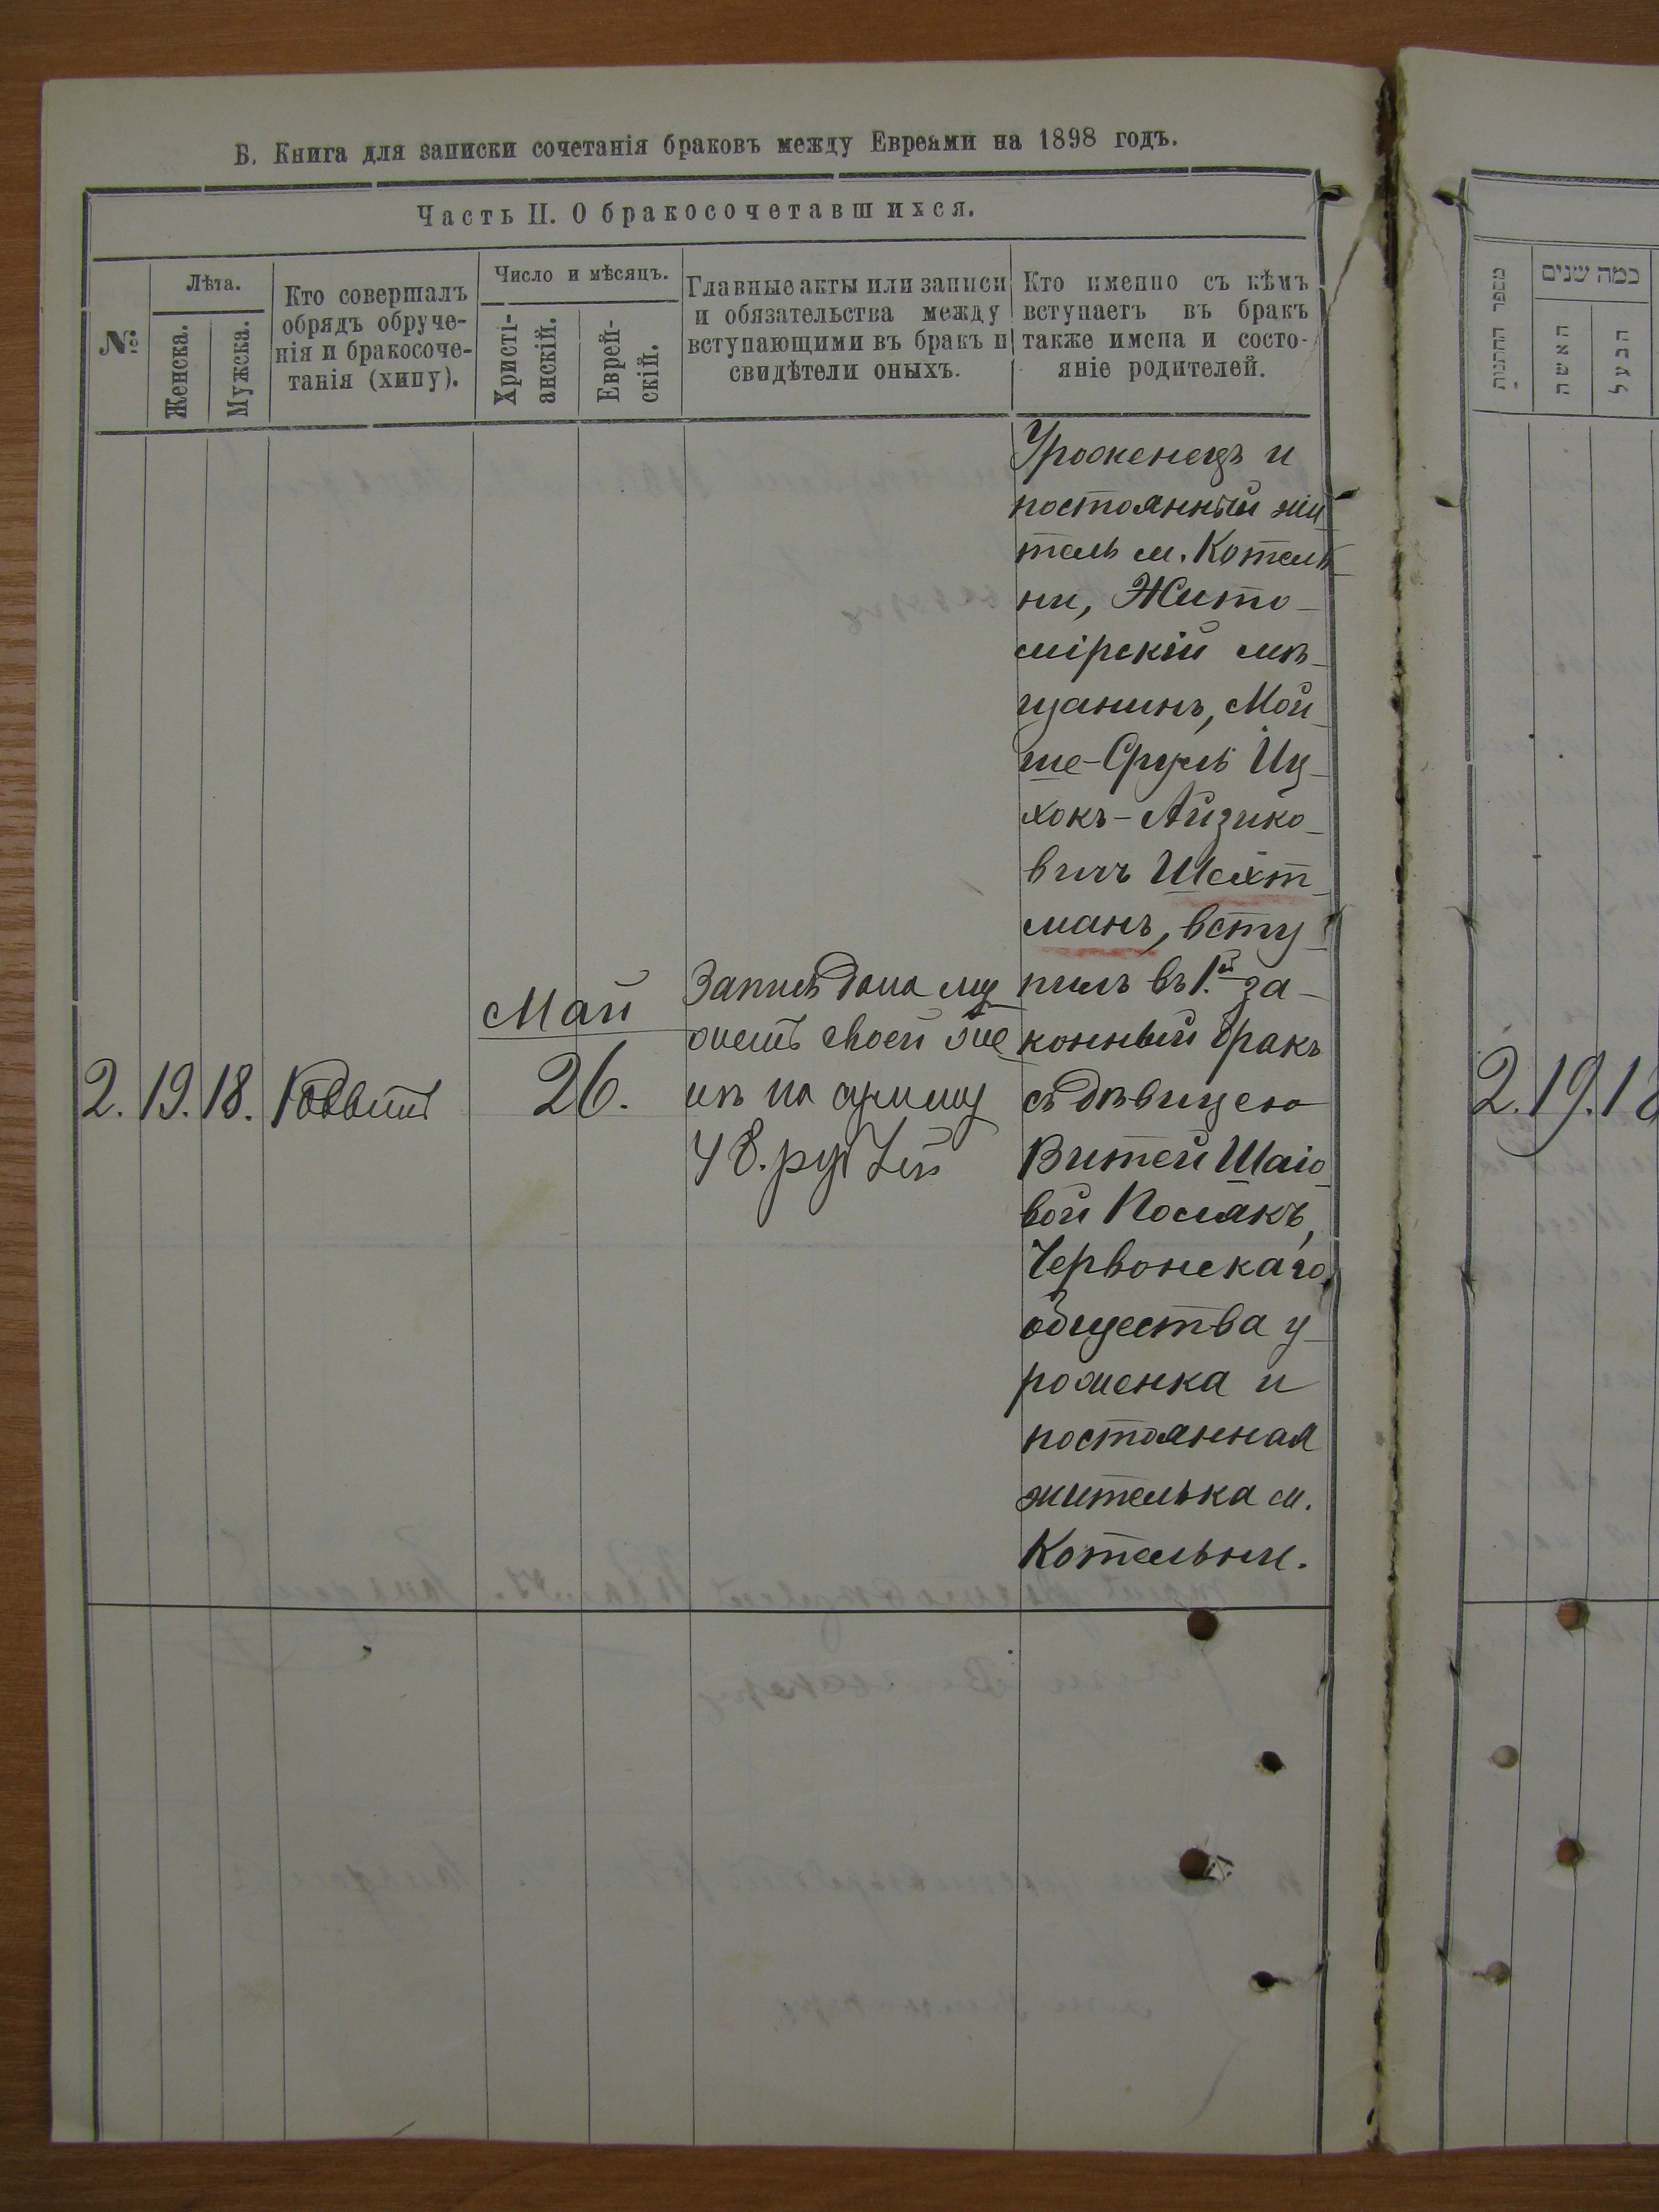 Б. Книга для записки сочетанія браковъ между Евреями на 1898 годъ.
Часть II. О бракосочетавшихся.
№
Лѣта.
Женска.
Мужска.
Кто совершалъ
обрядъ обруче-
нія и бракосоче-
танія (хипу).
Число и мѣсяцъ.
Христі-
анскій.
Еврей-
скій.
Главные акты или записи
и обязательства между
вступающими въ бракъ и
свидѣтели оныхъ.
Кто именно съ кѣмъ
вступаетъ въ бракъ
также имена и состо-
яніе родителей.
2. 19. 18.
Май
26.
Запись дана му
жемъ своей же
нѣ на сумму
48. руб
Уроженецъ и
постоянный жи
тель м. Котель
ни, Жито-
мірскій мѣ-
щанинъ, Мой
ше-Сруль Иц-
хокъ-Айзико-
вичъ Шехт-
манъ, всту-
пилъ въ 1.й за-
конный бракъ
съ дѣвицею
Витей Шаіо
вой Полякъ,
Червонскаго
общества у-
роженка и
постоянная
жителька м.
Котельни.
מספר החתונות
כמה שנים
האשה
הבעל
2. 19. 18